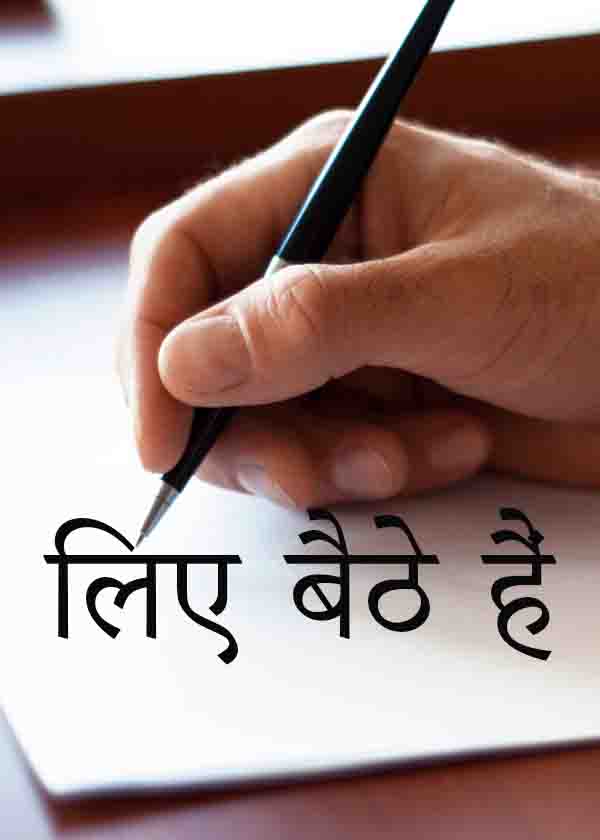 लिए बैठे हैं